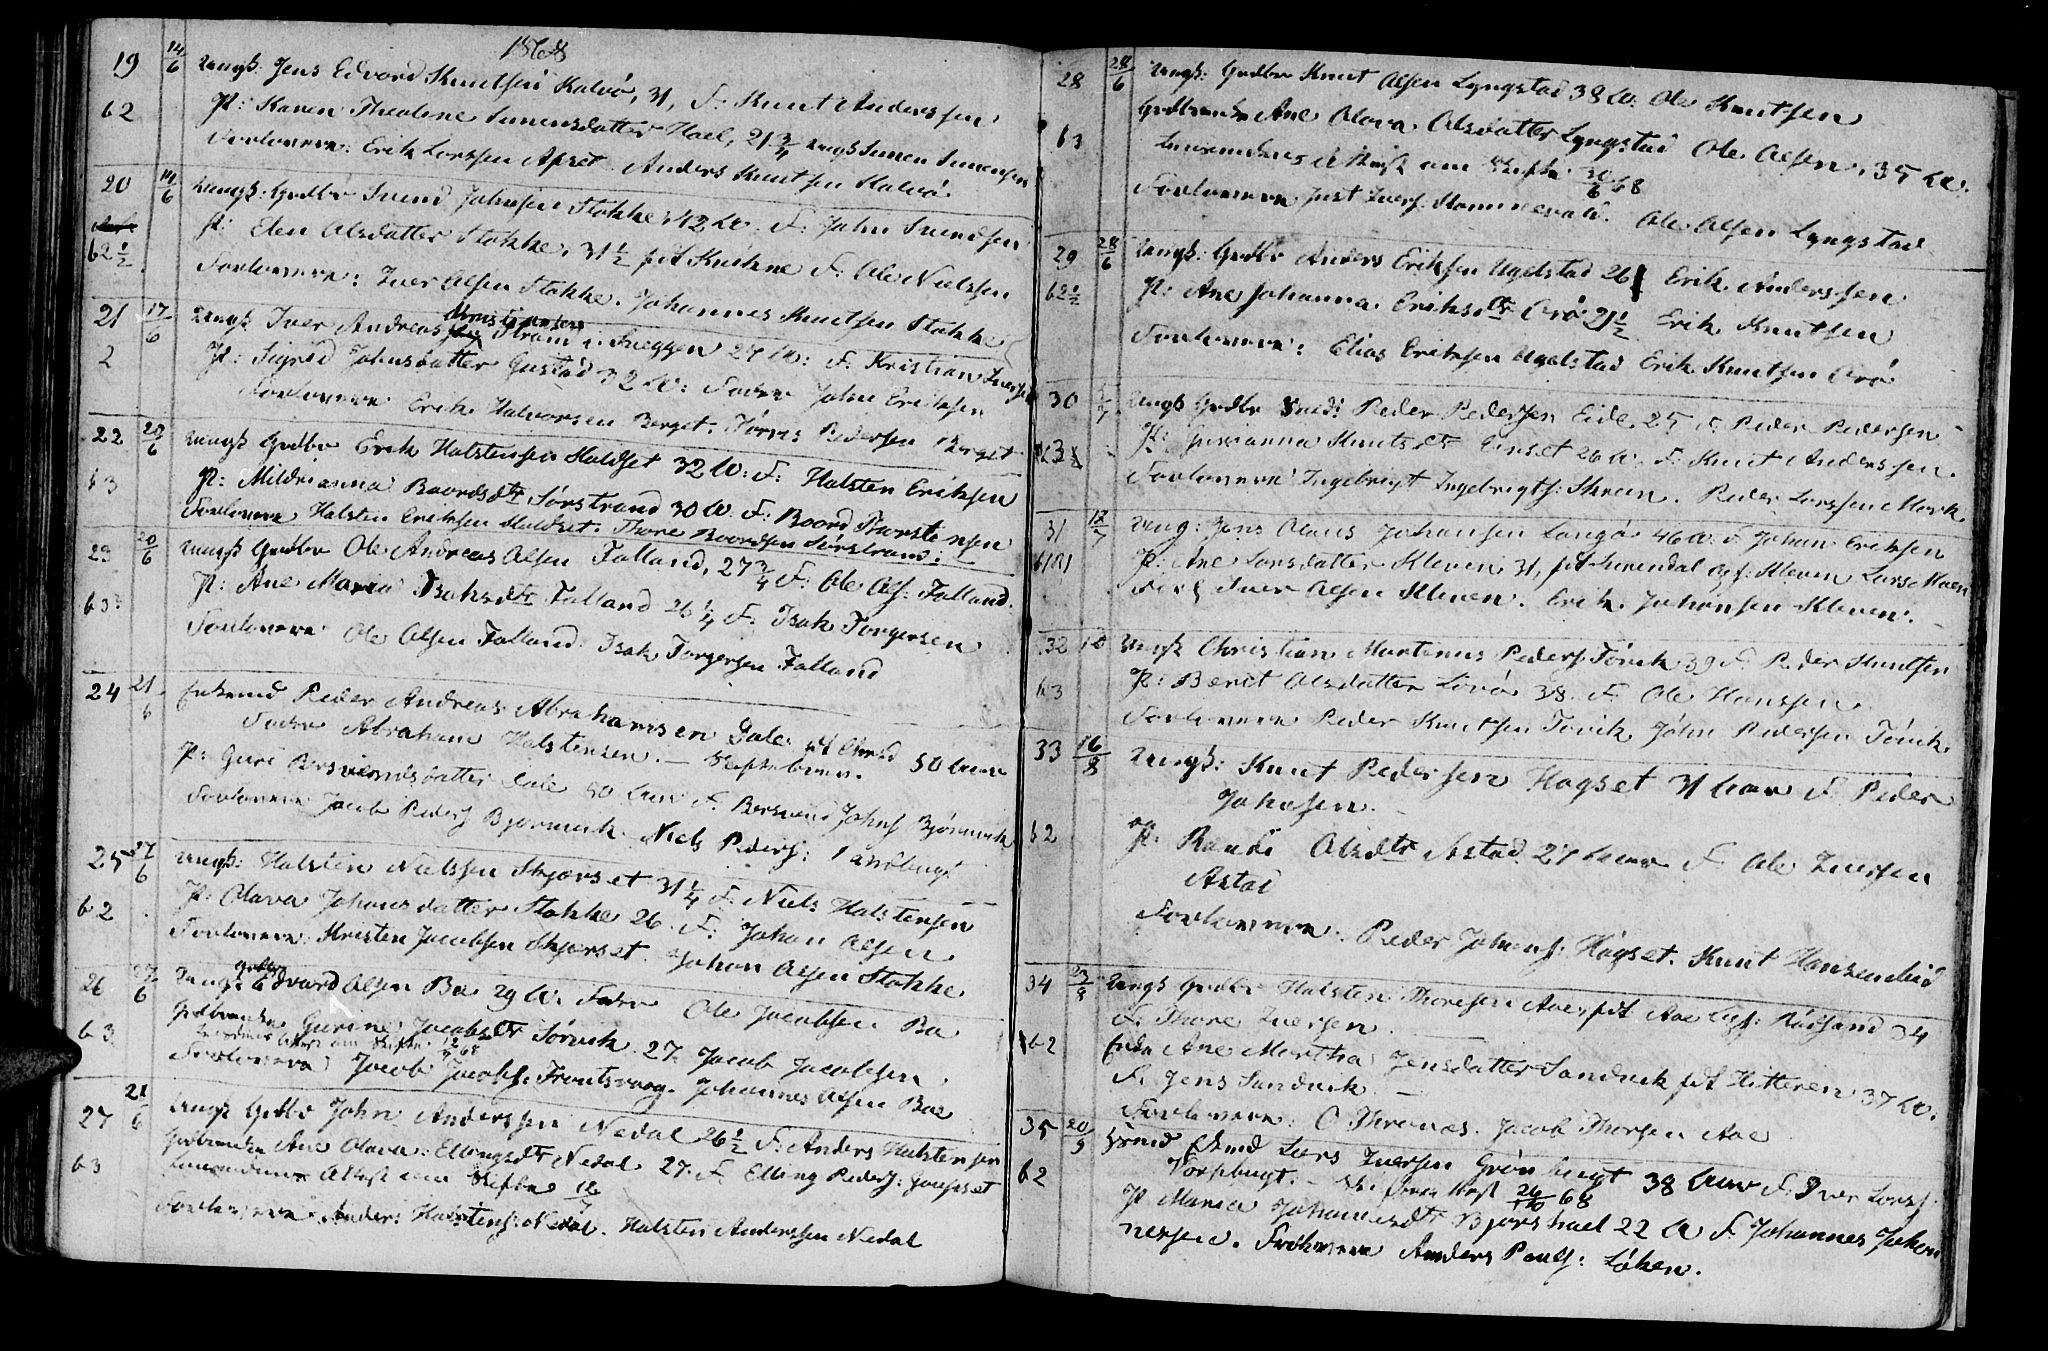 1868
19 14/6 Ungk: Jens Edvard Knutsen Kalvø, 31, F: Knut Anderssen
62 P: Karen Theoline Simensdatter Hoel, 21 3/4 Ungk Simen Simensen
Forlovere: Erik Larssen Apset. Anders Knutsen Kalvø.
20 14/6 Ungk: Grdbr Svend Johnsen Stokke 42 Aar. F: John Svendsen
62 1/2 P: Elen Olsdatter Stokke, 31 1/2 født Kuithne F: Ole Nielsen
Forlovere: Iver Olsen Stokke. Johannes Knutsen Stokke
21 17/6 Ungk Iver Andreas Kristiansen Strøm i Sneggen 27 Aar: F. Kristian Iversen
2 P: Sigrid Johnsdatter Gustad 32 Aar: Fader John Eriksen
Forlovere Erik Halvorsen Berget. Størris Pedersen Berget
22 20/6 Ungk Grdbr Erik Halstensen Haldset 32 Aar: F: Halsten Eriksen
63 P: Mildrianna Baardsdtr Sørstrand 30 Aar. F: Baard Thorstensen
Forlovere Halsten Eriksen Haldset. Thore Baardsen Sørstrand:
23 20/6 Ungk Grdbr Ole Andreas Olsen Falland, 27 3/4 F: Ole Ols: Falland.
63 P: Ane Maria Isaksdtr Falland 26 1/4 F: Isak Torgersen
Forlovere Ole Olsen Falland. Isak Torgersen Falland
24 21/6 Enkemd Peder Andreas Abrahamsen Dale, født 50 Aar
Fader Abraham Halstensen. — Skiftebrev.
P: Guri Bersvendsdatter Dale 50 Aar F. Bersvend Johns Bjørnvik
Forlovere Jacob Peders Bjørnvik. Niels Peders:
25 27/6 Ungk: Halsten Nielssen Skjørset 31 1/4 F: Niels Halstensen
62 P: Olava Johansdatter Stokke 26 F: Johan Olsen
Forlovere: Kristen Jacobsen Skjørset. Johan Olsen Stokke
26 27/6 Ungk: Grdbr Edvard Olsen Boe 29 Aar. Fader Ole Jacobsen Bø
63 Grdbrenke Gurine Jacobsdtr Sørvik 27. Jacob Jacobsen
Forlovere Jacob Jacobs. Frontsvaag. Johannes Olsen Boe
27 21/6 Ungk Grdbr John Anderssen Nedal 26 1/2 F: Anders Halstensen
63 Grdbrenke Ane Olava Ellingsdtr Nedal 27. F. Elling Peders:
Attest om Skifte 18/7
Forlovere: Anders Halstens: Nedal. Halsten Anderssen Nedal
28 28/6 Ungk: Grdbr Knut Olsen Lyngstad 38 Aar. Ole Knutsen
63 Grdbrenke Ane Olava Olsdatter Lyngstad Ole Olsen, 35 Aar.
Attest om Skifte 30/6 68
Forlovere Just Ivers. Ole Olsen Lyngstad
29 28/6 Ungk: Grdbr Anders Eriksen Ugelstad 26 Erik Anderssen
62 1/2 P: Ane Johanna Eriksdtr Orø 21 1/2 Erik Knutsen
Forlovere: Elias Eriksen Ugelstad Erik Knutsen Orø
30 Ungk Grdbr Peder Pedersen Eide 25 F. Peder Pedersen
63 P: Gurianna Knutsdtr Einset 26 Aar. F. Knut Anderssen.
Forlovere Ingebrigt Ingebrigts: Skrein. Peder Larssen Mork
31 12/7 Ung: Jens Olaus Johansen Langø 46 A. F. Johan Eriksen
P: Ane Larsdatter Kleven 31, født Surendal Opf: Kleven Lars Moen
Forl Iver Olsen Kleven. Erik Johansen Kleven.
32 Ungk Christian Martinus Peders Tøvik 39 F. Peder Knutsen
63 P: Berit Olsdatter Livø 38. F. Ole Hanssen
Forlovere Peder Knutsen Tøvik John Pedersen Tøvik.
33 16/8 Ungk: Knut Pedersen Hogset 31 Aar F. Peder
Johnsen.
62 og P. Randi Olsdtr Astad 27 Aar F. Ole Iversen
Astad
Forlovere: Peder Johans: Høgset. Knut Hansen Mid
34 23/8 Ungk Grdbr Halsten Thoresen Aae født Aae 34
F. Thore Iversen.
62 Enke Ane Martha Jensdatter Sandvik født Hitteren 37 Aar.
F. Jens Sandvik. —
Forlovere. O Thronæs. Jacob Thorsen Aae
35 20/9 Enkemd Lars Iversen Grønbugt 38 Aar F. Iver Larss:
62 Torsbugt. — 26/10 68
P Maria Johannesdtr Bjørshael 22 A F. Johannes Johan
nessen. Forlovere Anders Pauls: Løken.